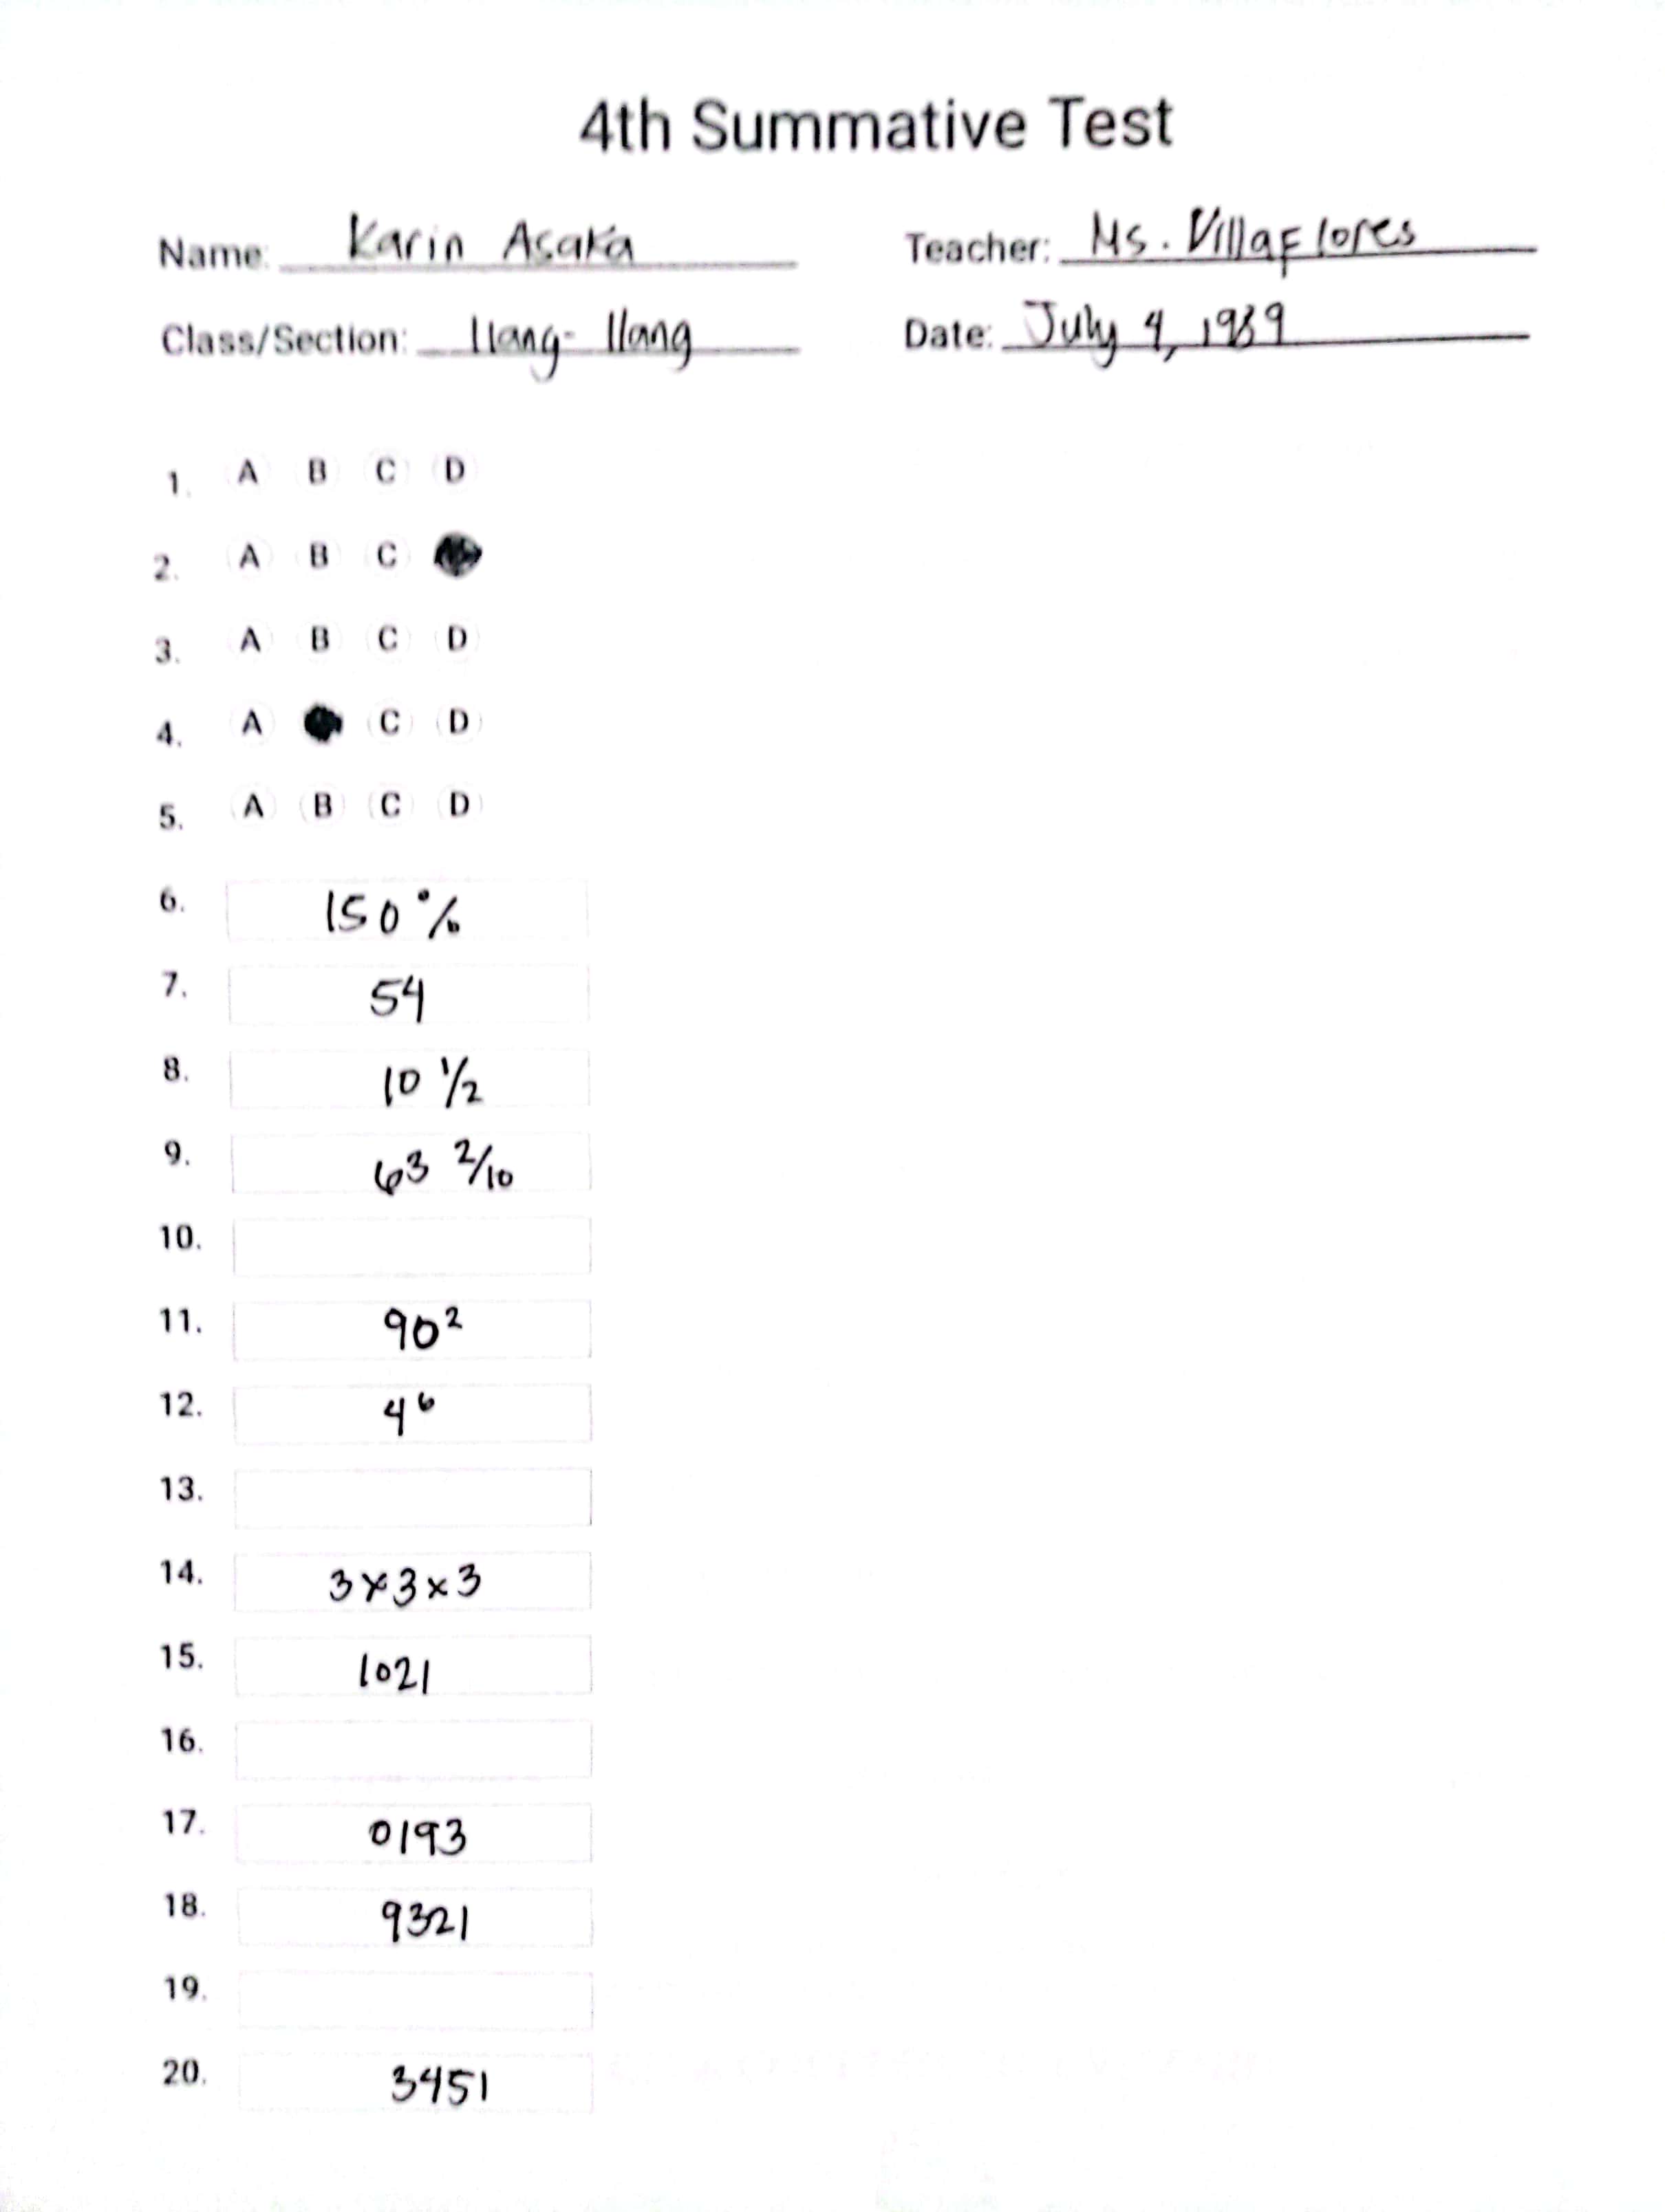 4th Summative Test
Name: Karin Asaka Teacher: Ms. Villaflores
Class/Section: Ilang-Ilang Date: July 4, 1989
1. A B C D
2. A B C
3. A B C D
4. A C D
5. A B C D
6. 150%
7. 54
8. 10 1/2
9. 63 2/10
10.
11. 90²
12. 4⁶
13.
14. 3x3x3
15. 1021
16.
17. 0193
18. 9321
19.
20. 3451